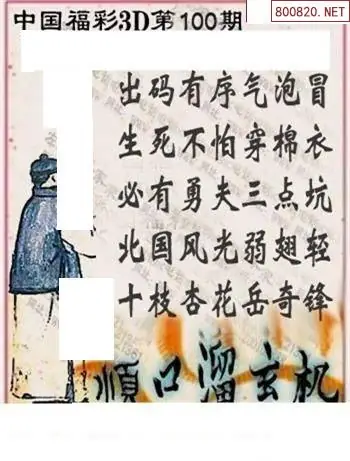 800820.NET
中国福彩3D第100期
出码有序气泡冒
生死不怕穿棉衣
必有勇夫三点坑
北国风光弱翅轻
十枝杏花岳奇锋
順口溜玄机